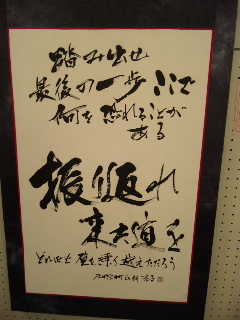 踏み出せ
最後の一歩ここで
何を恐れることが
ある
振り返れ
来た道を
どれほど壁を乗り越えただろう